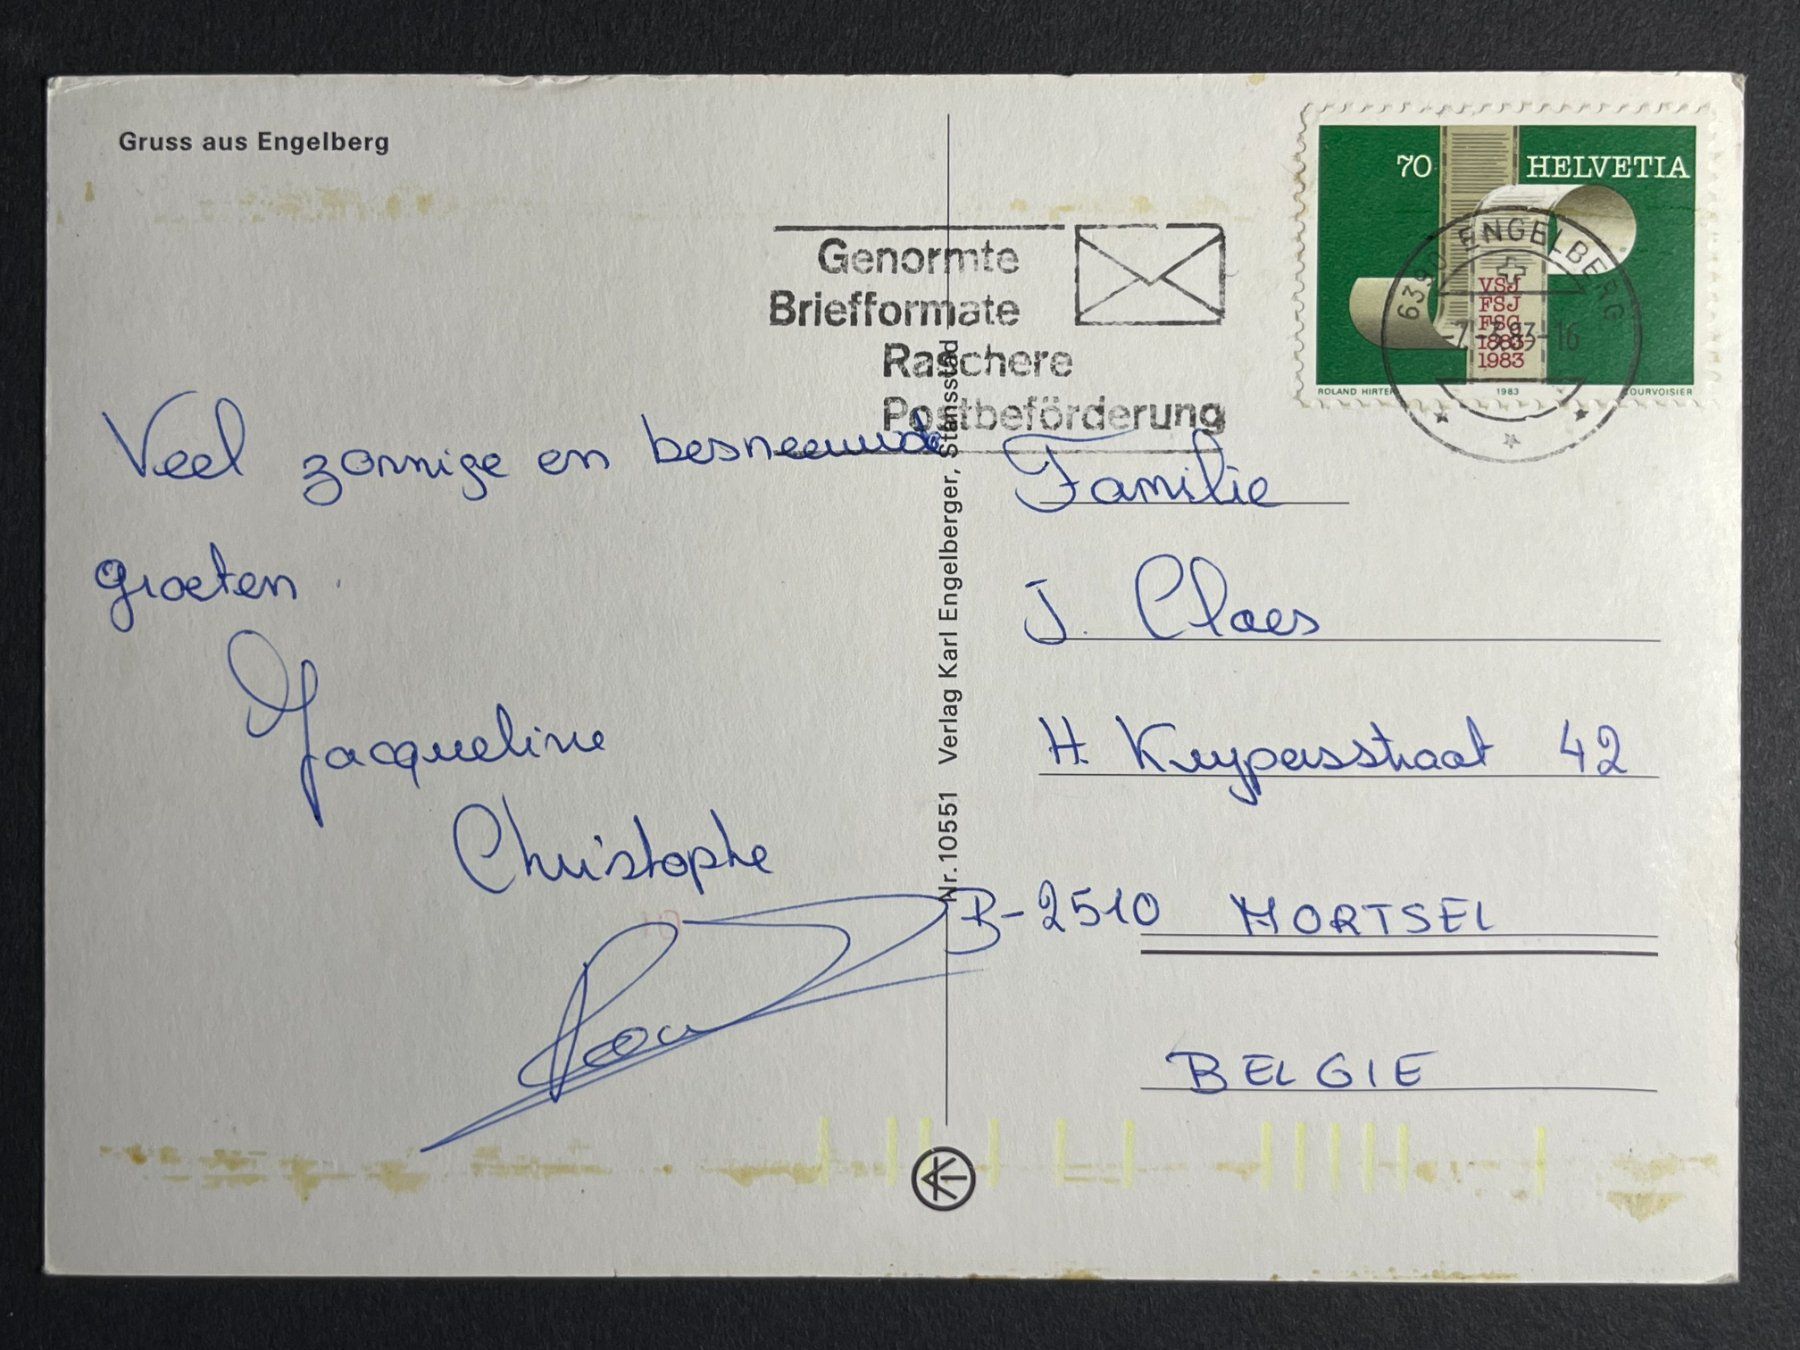 Gruss aus Engelberg
70 HELVETIA
Genormte
Briefformate
Raschere
Postbeförderung
6390 ENGELBERG
-7.-3.83-16
VSJ
FSJ
FSG
1883
1983
ROLAND HIRTER 1983 COURVOISIER
Veel zonnige en besneeuwde
groeten.
Jacqueline
Christophe
Nr. 10551 Verlag Karl Engelberger, Stansstad
Familie
J. Claes
H. Kuypersstraat 42
B-2510 MORTSEL
BELGIE